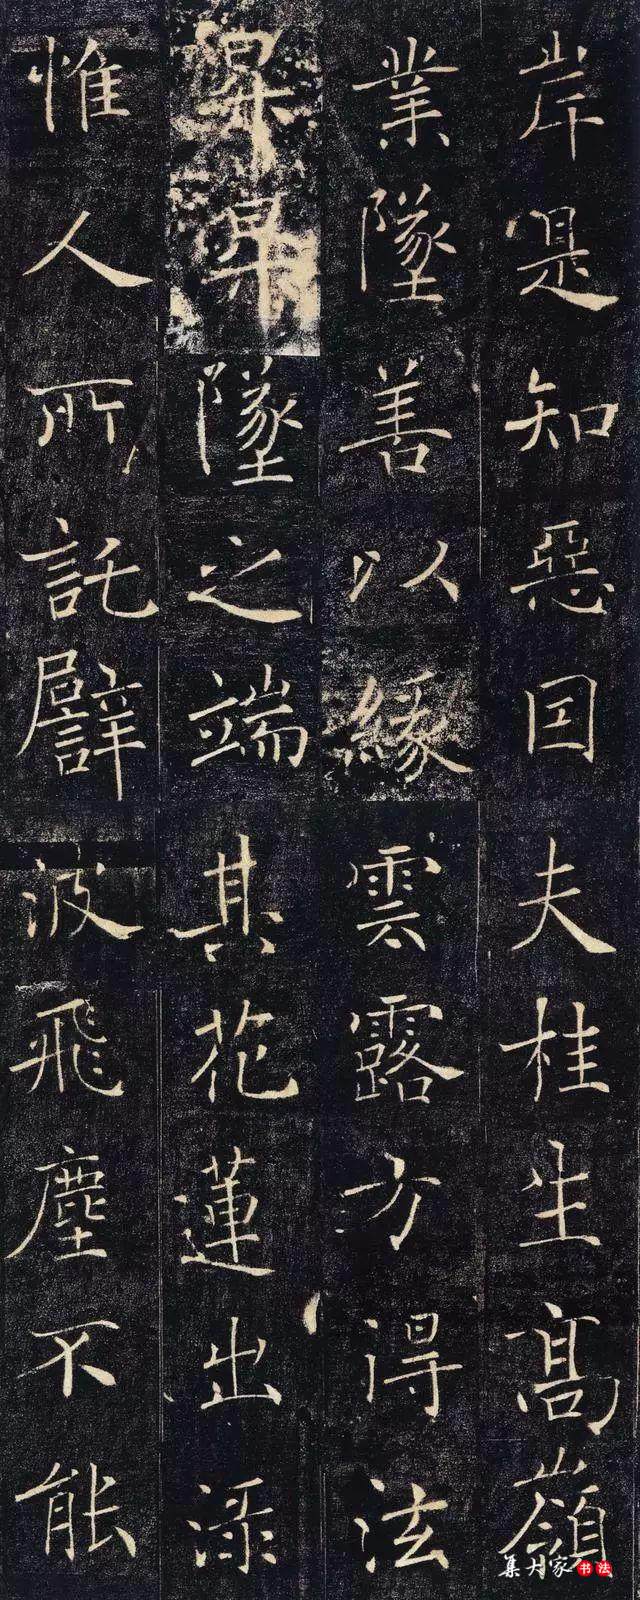 岸是知惡因
業墜善以緣
昇昇墜之端
惟人所託譬
夫桂生高嶺
雲露方得泫
其花蓮出淥
波飛塵不能
集大家书法